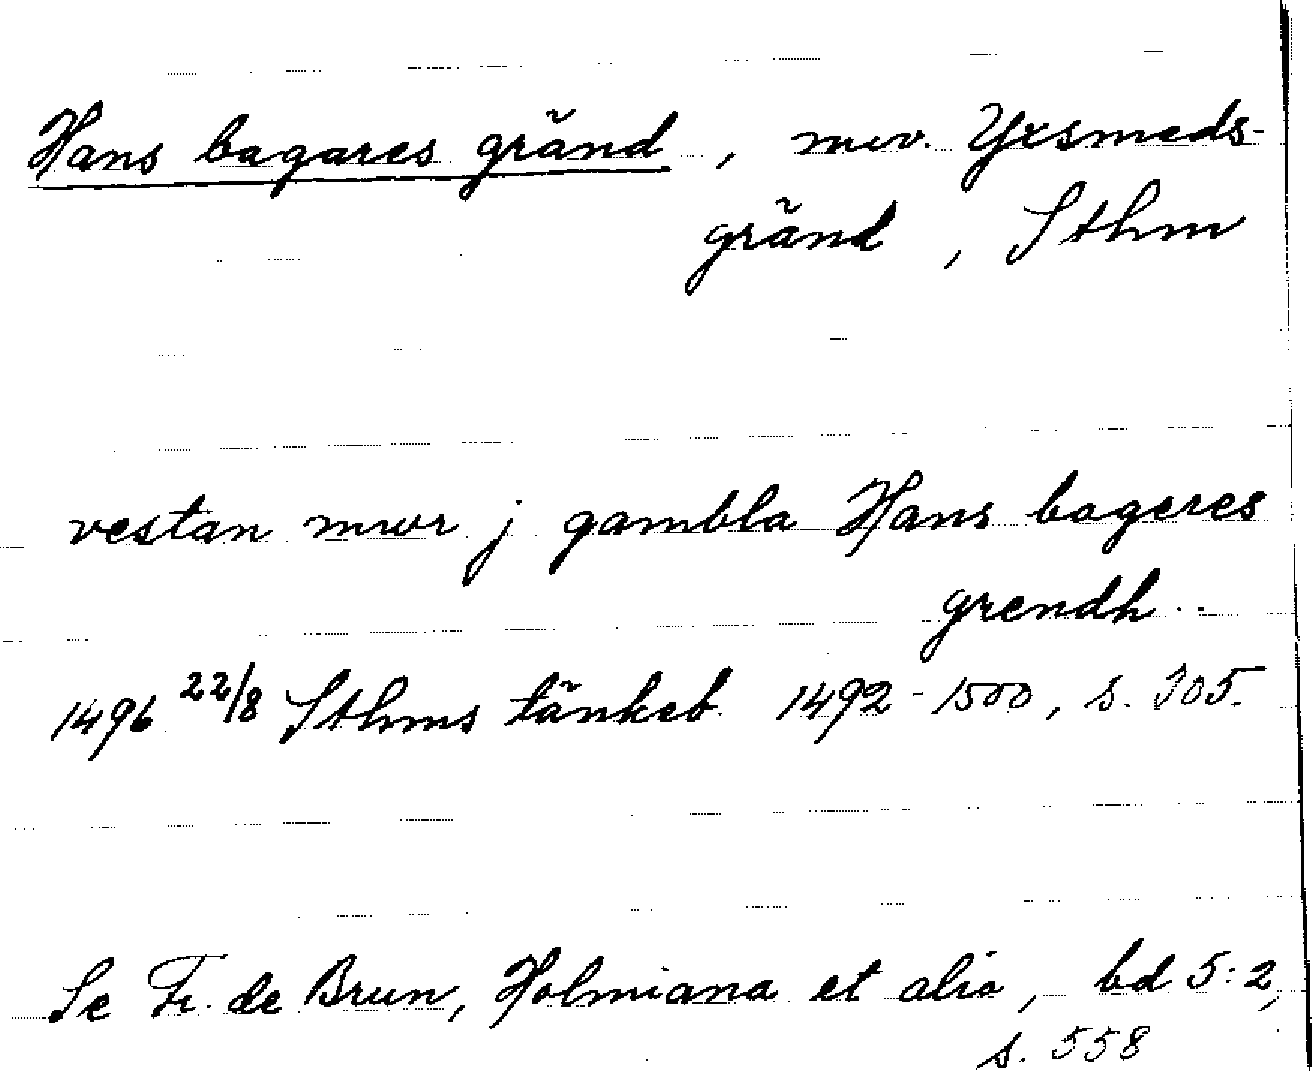 Hans bagares gränd, nuv. Yxsmeds-
gränd, Sthm
vestan mwr j gambla Hans bageres
grendh..
1496 22/8 Sthms tänkeb. 1492-1500, s. 305.
Se Fr. de Brun, Holmiana et alia, bd 5:2,
s. 558